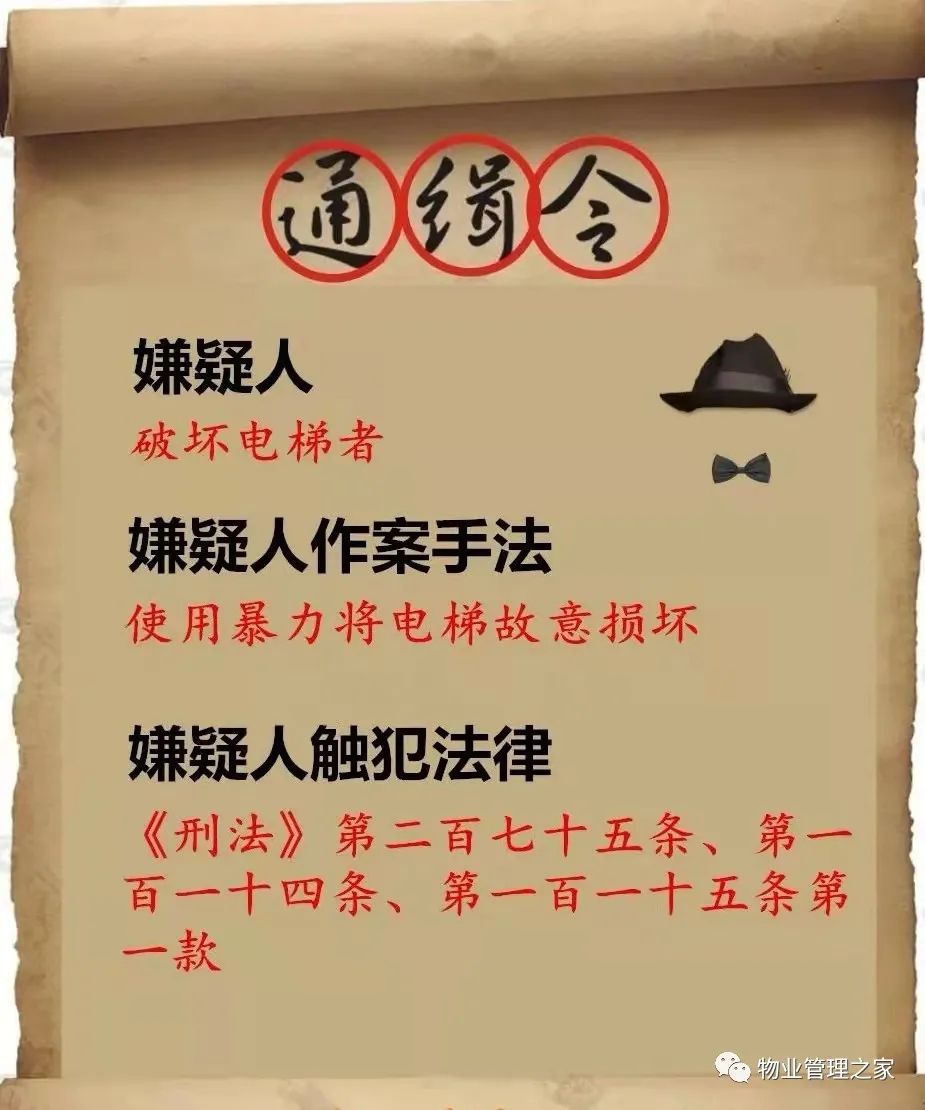 通缉令
嫌疑人
破坏电梯者
嫌疑人作案手法
使用暴力将电梯故意损坏
嫌疑人触犯法律
《刑法》第二百七十五条、第一
百一十四条、第一百一十五条第
一款
物业管理之家